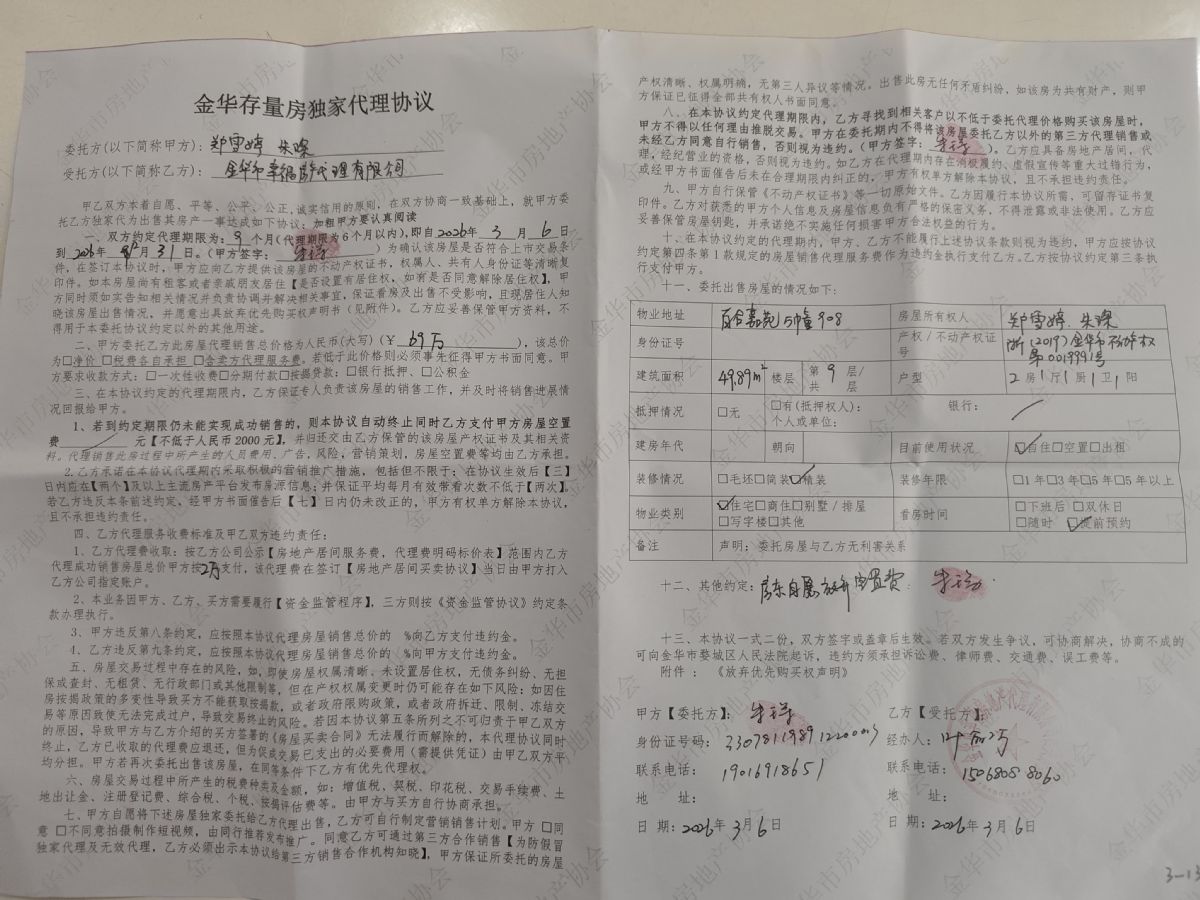 金华存量房独家代理协议
委托方(以下简称甲方)：郑雪婷 朱璨
受托方(以下简称乙方)：金华市幸福房产代理有限公司
甲乙双方本着自愿、平等、公平、公正、诚实信用的原则，在双方协商一致基础上，就甲方委
托乙方独家代为出售其房产一事达成如下协议：加粗甲方要认真阅读
一、双方约定代理期限为：9 个月(代理期限为6个月以内)，即自2026年 3 月 6 日
到 2026年 月 31 日。(甲方签字： )为确认该房屋是否符合上市交易条
件，在签订本协议时，甲方应向乙方提供该房屋的不动产权证书，权属人、共有人身份证等清晰复
印件。如本房屋尚有租客或者亲戚朋友居住【是否设置有居住权，如有是否同意解除居住权】，甲
方同时须如实告知相关情况并负责协调并解决相关事宜，保证看房及出售不受影响，且现居住人知
晓该房屋出售情况，并愿意出具放弃优先购买权声明书（见附件）。乙方应妥善保管甲方资料，不
得用于本委托协议约定以外的其他用途。
二、甲方委托乙方此房屋代理销售总价格为人民币(大写)(￥ 69万 )，该总价
为□净价 □税费各自承担 □含卖方代理服务费。若低于此价格则必须事先征得甲方书面同意。甲
方要求收款方式：□一次性收费□分期付款□按揭贷款：□银行抵押、□公积金
三、在本协议约定的代理期限内，乙方保证专人负责该房屋的销售工作，并及时将销售进展情
况回报给甲方。
1、若到约定期限仍未能实现成功销售的，则本协议自动终止同时乙方支付甲方房屋空置
费 元【不低于人民币2000元】，并归还交由乙方保管的该房屋产权证书及其相关资
料。代理销售此房过程中所产生的人员费用、广告，风险，营销策划，房屋空置费等均由乙方承担。
2.乙方承诺在本协议代理期内采取积极的营销推广措施，包括但不限于：在协议生效后【三】
日内应在【两个】及以上主流房产平台发布房源信息；并保证平均每月有效带看次数不低于【两次】。
若乙方违反本条前述约定，经甲方书面催告后【七】日内仍未改正的，甲方有权单方解除本协议，
且不承担违约责任。
四、乙方代理服务收费标准及甲乙双方违约责任：
1、乙方代理费收取：按乙方公司公示【房地产居间服务费，代理费明码标价表】范围内乙方
代理成功销售房屋总价甲方按2万支付，该代理费在签订【房地产居间买卖协议】当日由甲方打入
乙方公司指定账户。
2、本业务因甲方、乙方、买方需要履行【资金监管程序】，三方则按《资金监管协议》约定条
款办理执行。
3、甲方违反第八条约定，应按照本协议代理房屋销售总价的 %向乙方支付违约金。
4、乙方违反第九条约定，应按照本协议代理房屋销售总价的 %向甲方支付违约金。
五、房屋交易过程中存在的风险，如，即使房屋权属清晰、未设置居住权，无债务纠纷、无担
保或查封、无租赁、无行政部门或其他限制等，但在产权权属变更时仍可能存在如下风险：如因住
房按揭政策的多变性导致买方不能获取按揭款，或者政府限购政策，或者政府拆迁、限制、冻结交
易等原因致使无法完成过户，导致交易终止的风险。若因本协议第五条所列之不可归责于甲乙双方
的原因，导致甲方与乙方介绍的买方签署的《房屋买卖合同》无法履行而解除的，本代理协议同时
终止，乙方已收取的代理费应退还，但为促成交易已支出的必要费用（需提供凭证）由甲乙双方平
均分担。甲方若再次委托出售该房屋，在同等条件下乙方有优先代理权。
六、房屋交易过程中所产生的税费种类及金额，如：增值税、契税、印花税、交易手续费、土
地出让金、注册登记费、综合税、个税、按揭评估费等。由甲方与买方自行协商承担。
七、甲方自愿将下述房屋独家委托给乙方代理出售，乙方可自行制定营销销售计划。甲方 □同
意 □不同意拍摄制作短视频，由同行推荐发布推广。同意乙方可通过第三方合作销售【为防假冒
独家代理及无效代理，乙方必须出示本协议给第三方销售合作机构知晓】，甲方保证所委托的房屋
产权清晰、权属明确，无第三人异议等情况。出售此房无任何矛盾纠纷，如该房为共有财产，则甲
方保证已征得全部共有权人书面同意。
八、在本协议约定代理期限内，乙方寻找到相关客户以不低于委托代理价格购买该房屋时，
甲方不得以任何理由推脱交易。甲方在委托期内不得将该房屋委托乙方以外的第三方代理销售或
未经乙方同意自行销售，否则视为违约。（甲方签字： ）。乙方应具备房地产居间，代
理，经纪营业的资格，否则视为违约。如乙方在代理期内存在消极履约、虚假宣传等重大过错行为，
或经甲方书面催告后未在合理期限内纠正的，甲方有权单方解除本协议，且不承担违约责任。
九、甲方自行保管《不动产权证书》等一切原始文件。乙方因履行本协议所需，可留存证书复
印件。乙方对获悉的甲方个人信息及房屋信息负有严格的保密义务，不得泄露或非法使用。乙方应
妥善保管房屋钥匙，并承诺绝不实施任何损害甲方合法权益的行为。
十、在本协议约定的代理期内，甲方、乙方不能履行上述协议条款则视为违约，甲方应按协议
约定第四条第1款规定的房屋销售代理服务费作为违约金执行支付乙方。乙方按协议约定第三条执
行支付甲方。
十一、委托出售房屋的情况如下：
物业地址 百合嘉苑 幢908 房屋所有权人 郑雪婷、朱璨
身份证号 产权/不动产权证号 浙(2019)金华市不动产权第0019991号
建筑面积 49.89m² 楼层 第 9 层/共 层 户型 2房1厅1厨1卫1阳
抵押情况 □无 □有(抵押权人)： 银行： 个人或单位：
建房年代 朝向 目前使用状况 ☑自住□空置□出租
装修情况 □毛坯□简装☑精装 装修年限 □1年□3年□5年□5年以上
物业类别 ☑住宅□商住□别墅/排屋 □写字楼□其他 看房时间 □下班后□双休日 □随时 ☑提前预约
备注 声明：委托房屋与乙方无利害关系
十二、其他约定：房东自愿放弃空置费
十三、本协议一式二份，双方签字或盖章后生效。若双方发生争议，可协商解决，协商不成的
可向金华市婺城区人民法院起诉，违约方须承担诉讼费、律师费、交通费、误工费等。
附件：《放弃优先购买权声明》
甲方【委托方】：
身份证号码：330781198912200013
联系电话：19016918651
地 址：
日 期：2026年 3月 6日
乙方【受托方】：
经办人：
联系电话：15068088060
地 址：
日 期：2026年 3月 6日
3-13